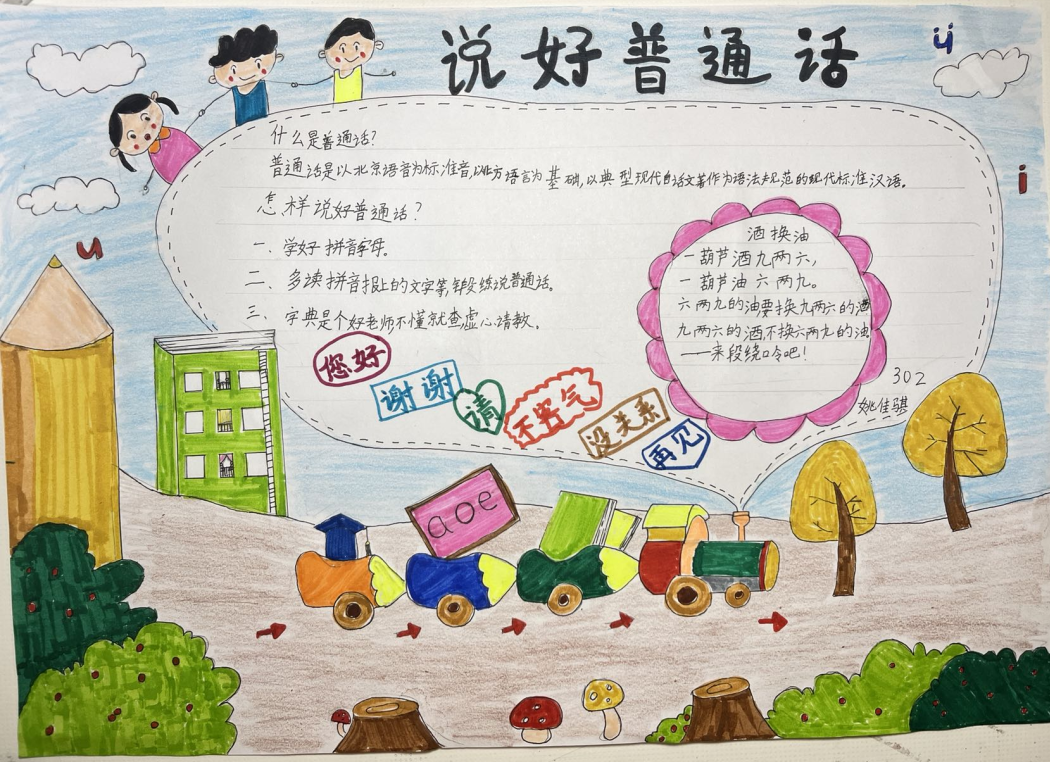 说好普通话
ü
i
u
什么是普通话?
普通话是以北京语音为标准音,以北方语言为基础,以典型现代白话文著作为语法规范的现代标准汉语。
怎样说好普通话?
一、学好拼音字母。
二、多读拼音报上的文字等,锻练说普通话。
三、字典是个好老师不懂就查虚心请教。
酒换油
一葫芦酒九两六,
一葫芦油六两九。
六两九的油要换九两六的酒
九两六的酒,不换六两九的油
——来段绕口令吧!
302
姚佳骐
您好
谢谢
请
不客气
没关系
再见
aoe